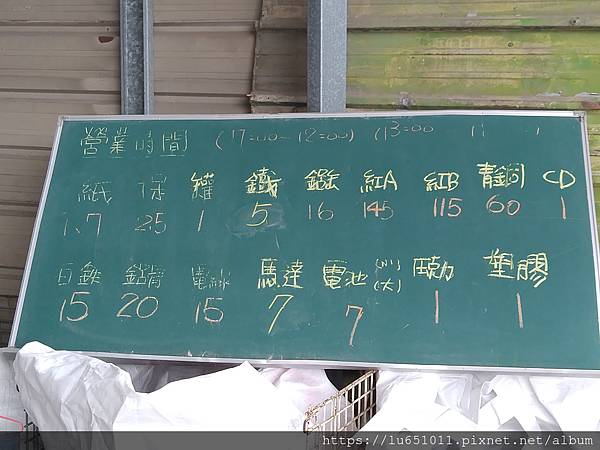 營業時間 (17=00~12=00) (13=00
紙 保 罐 鐵 鋁 紅A 紅B 青銅 CD
1.7 2.5 1 5 16 145 115 60 1
白鐵 鋁窗 電線 馬達 電池 (小) (大) 壓克力 塑膠
15 20 15 7 7 1 1
https://lu651011.pixnet.net/album